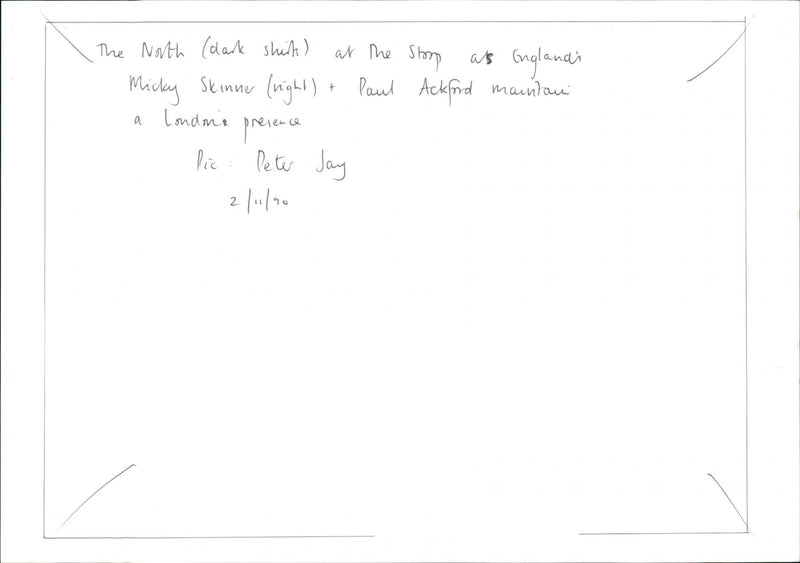 The North (dark shirts) at the Stoop as England's
Micky Skinner (right) + Paul Ackford maintain
a London presence
Pic: Peter Jay
2/11/90